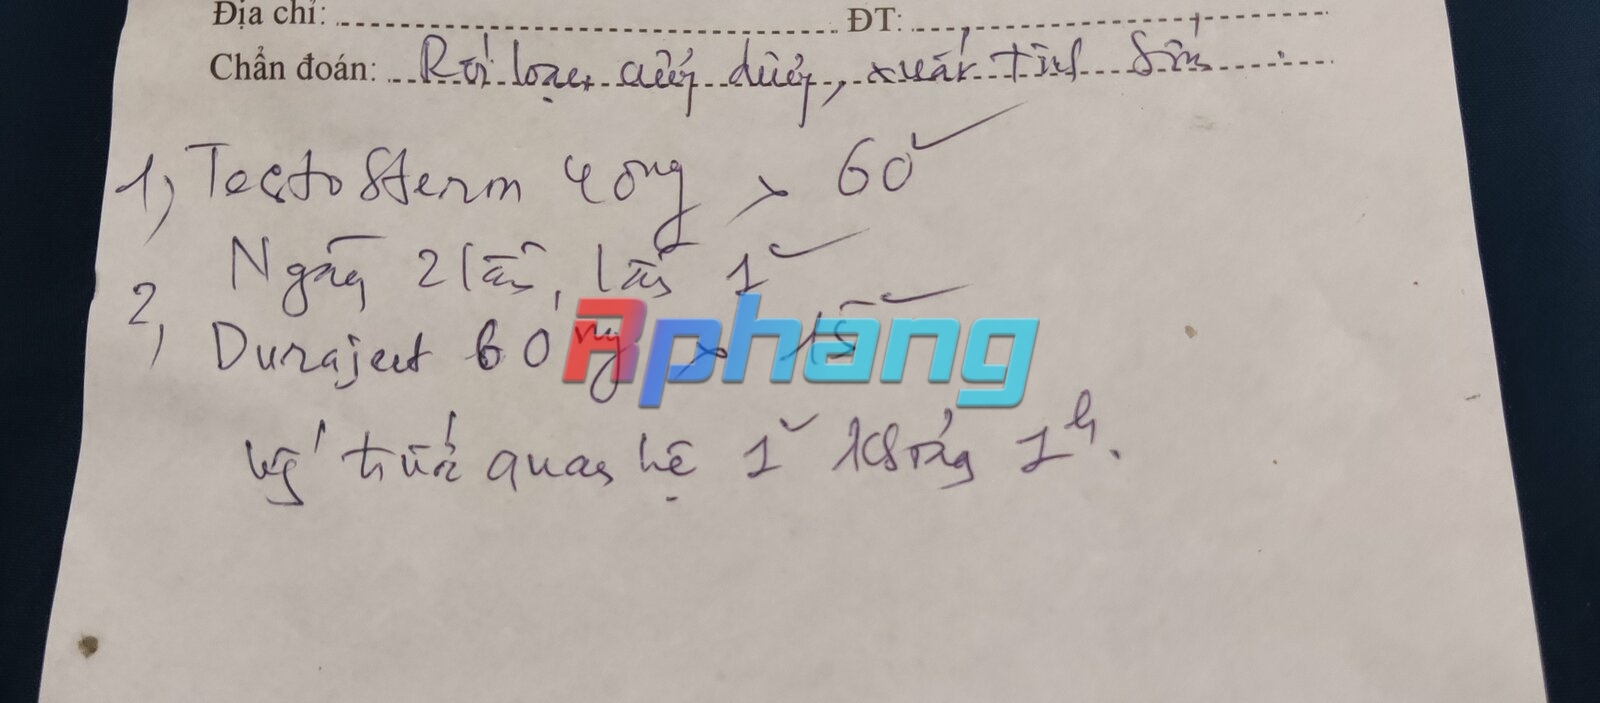 Địa chỉ: ĐT:
Chẩn đoán: Rối loạn cương dương, xuất tinh sớm
1, Testosterm 40mg x 60v
Ngày 2 lần, lần 1v
2, Duraject 60mg x 15v
trước quan hệ 1v khoảng 1h.
Rphang